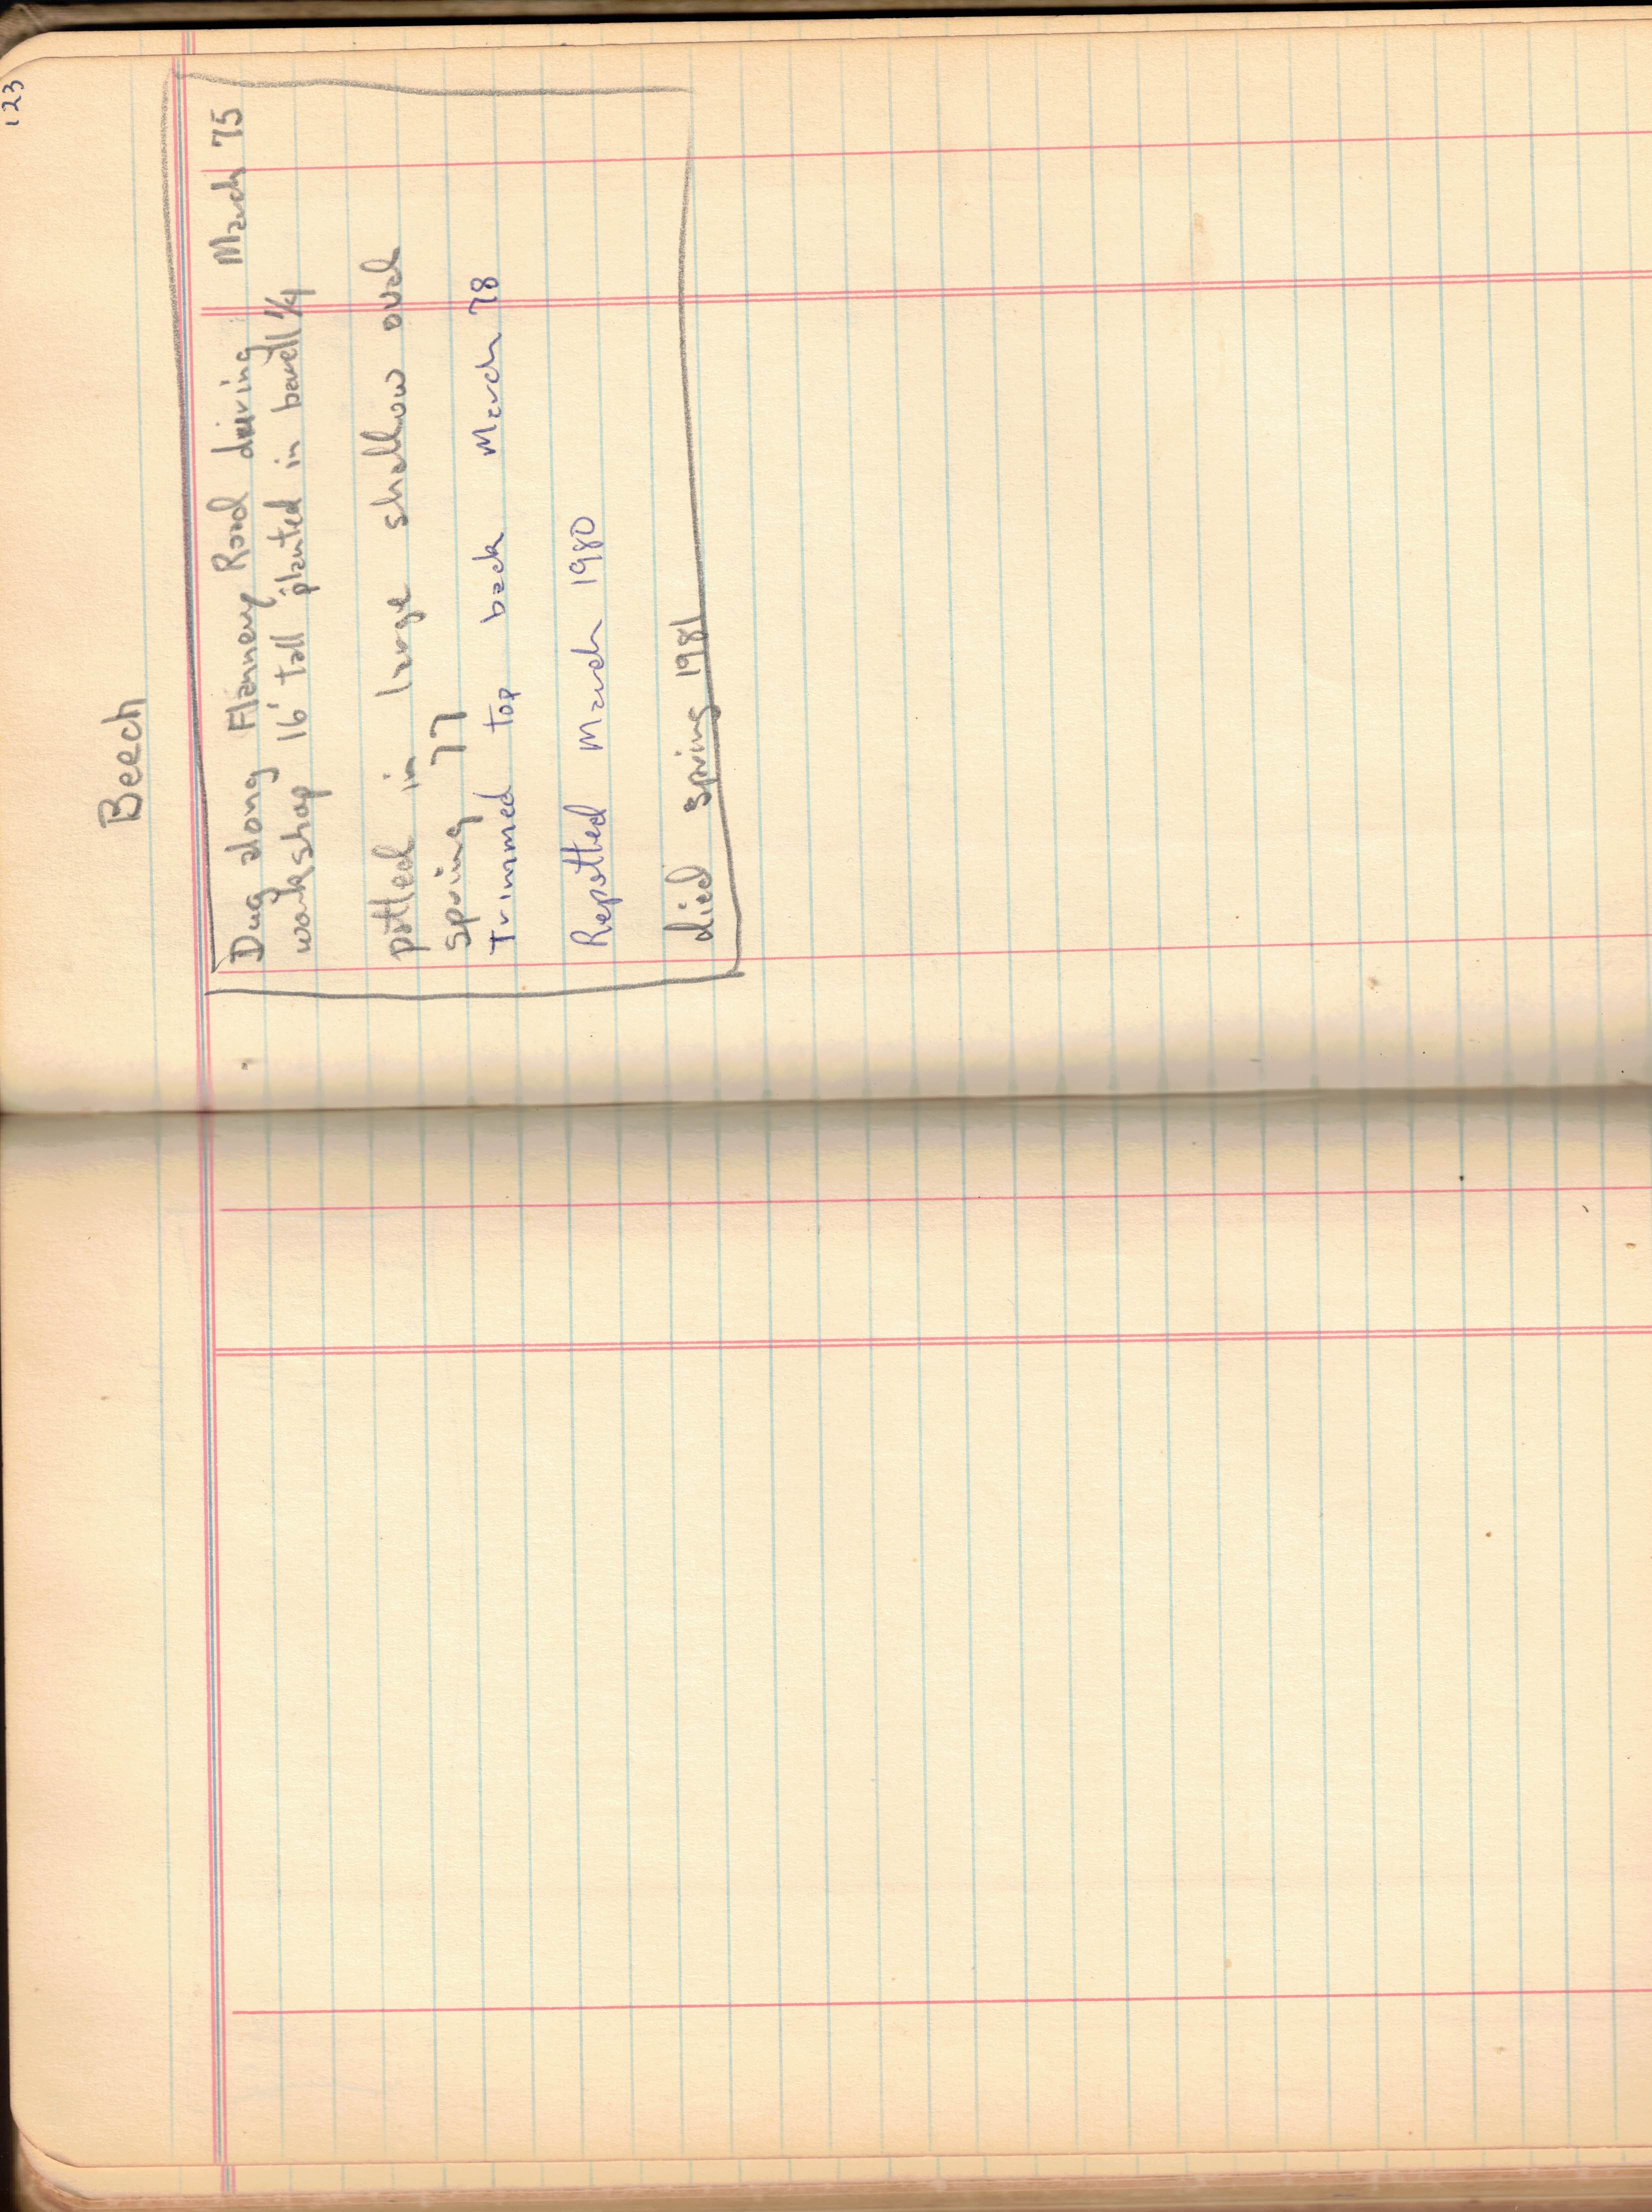 123
Beech
Dug along Flannery Road during March 75
workshop 16' tall planted in barell 1/4
potted in large shallow oval
spring 77
Trimmed top back March 78
Repotted March 1980
died spring 1981